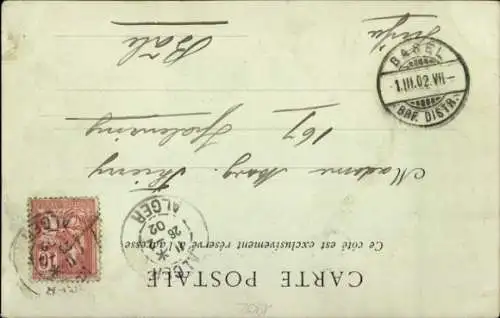 CARTE POSTALE
Ce côté est exclusivement réservé à l'adresse
ALGER
26
02
ALGER
10
Madame Marg. Thierry
167
Bâle
BASEL
1.III.02.VII-
BRF. DISTR.